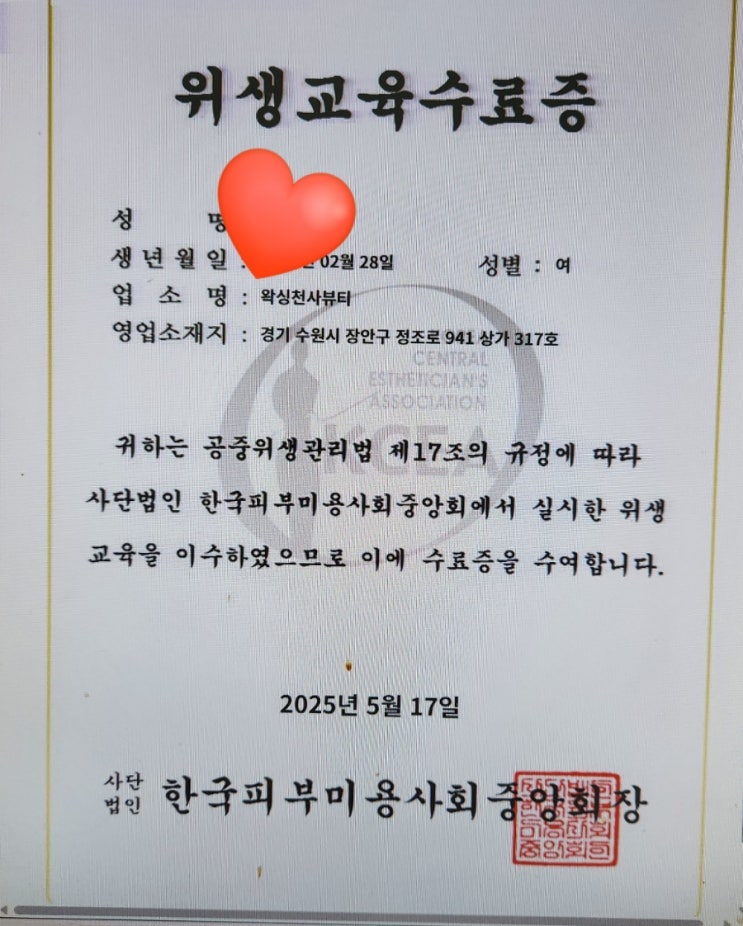 위생교육수료증
성 명
02월 28일 성별 : 여
생년월일 :
업 소 명 : 왁싱천사뷰티
영업소재지 : 경기 수원시 장안구 정조로 941 상가 317호
CENTRAL
ESTHETICIAN'S
ASSOCIATION
KCEA
귀하는 공중위생관리법 제17조의 규정에 따라
사단법인 한국피부미용사회중앙회에서 실시한 위생
교육을 이수하였으므로 이에 수료증을 수여합니다.
2025년 5월 17일
사단
법인 한국피부미용사회중앙회장